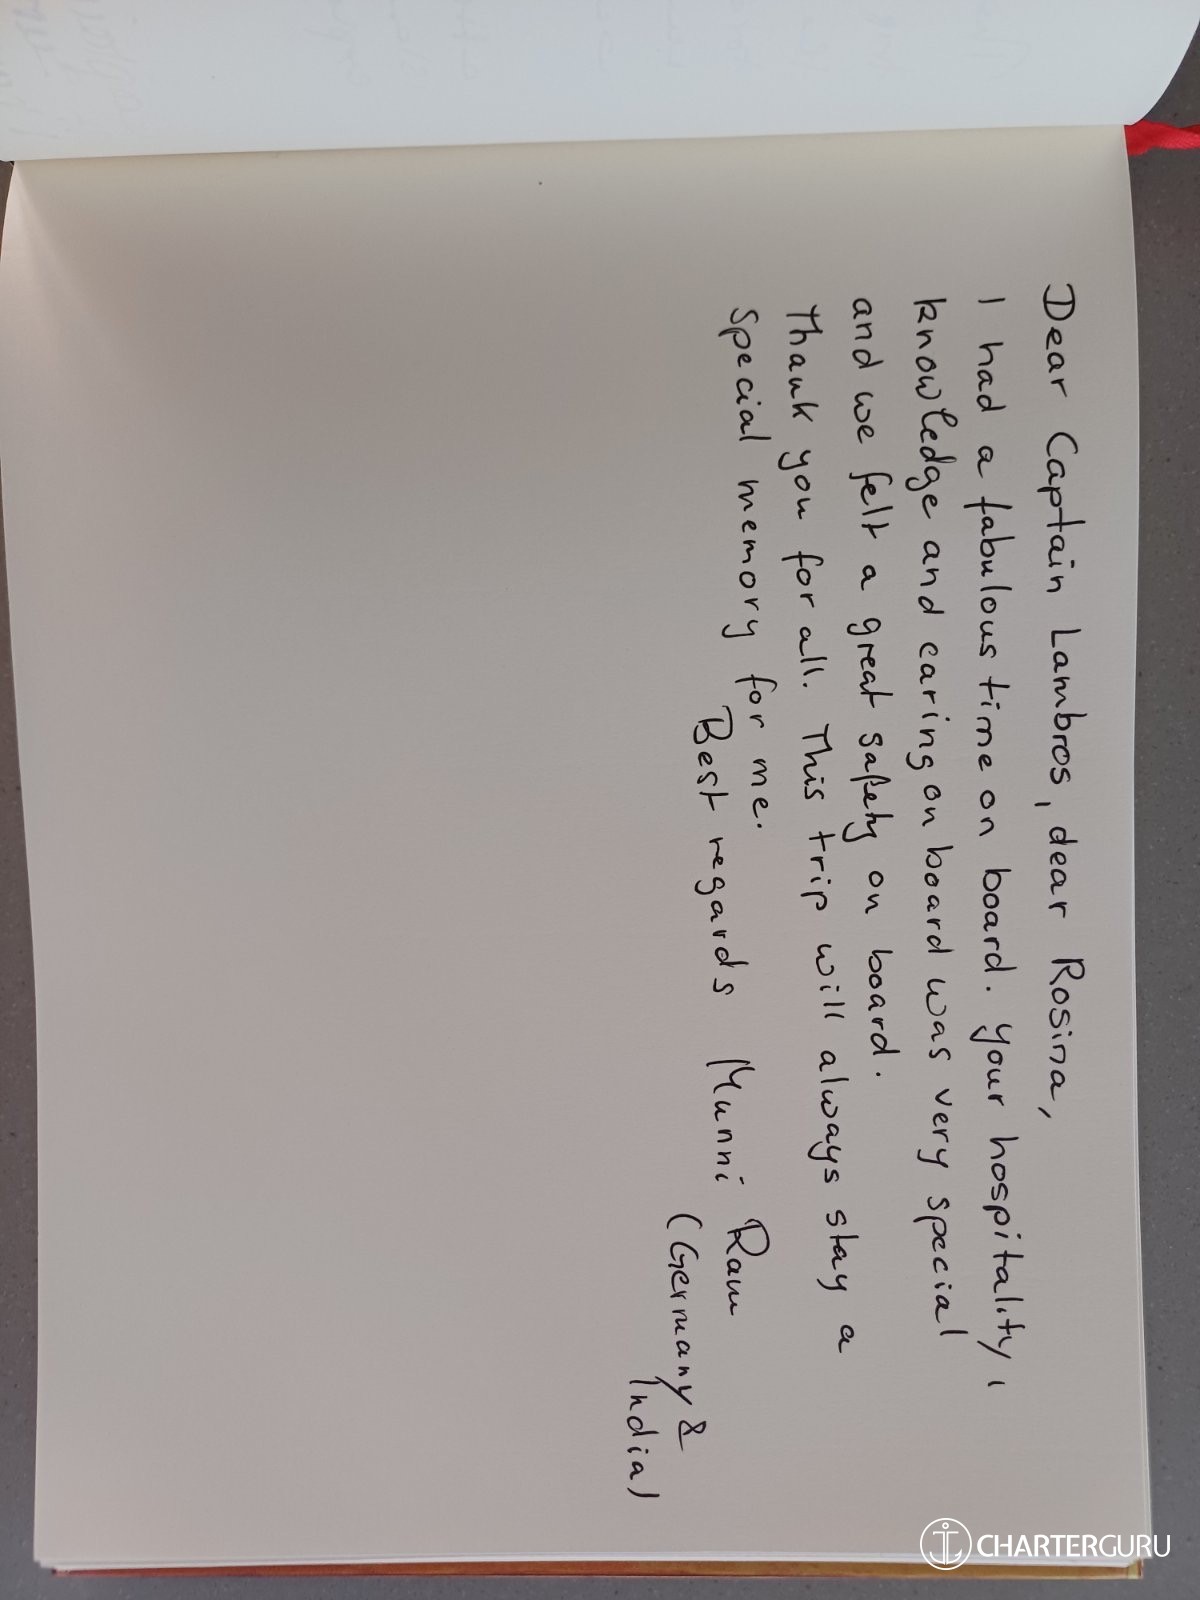 Dear Captain Lambros, dear Rosina,
I had a fabulous time on board. Your hospitality,
knowledge and caring on board was very special
and we felt a great safety on board.
Thank you for all. This trip will always stay a
special memory for me.
Best regards Munni Ram
(Germany &
India)
CHARTERGURU